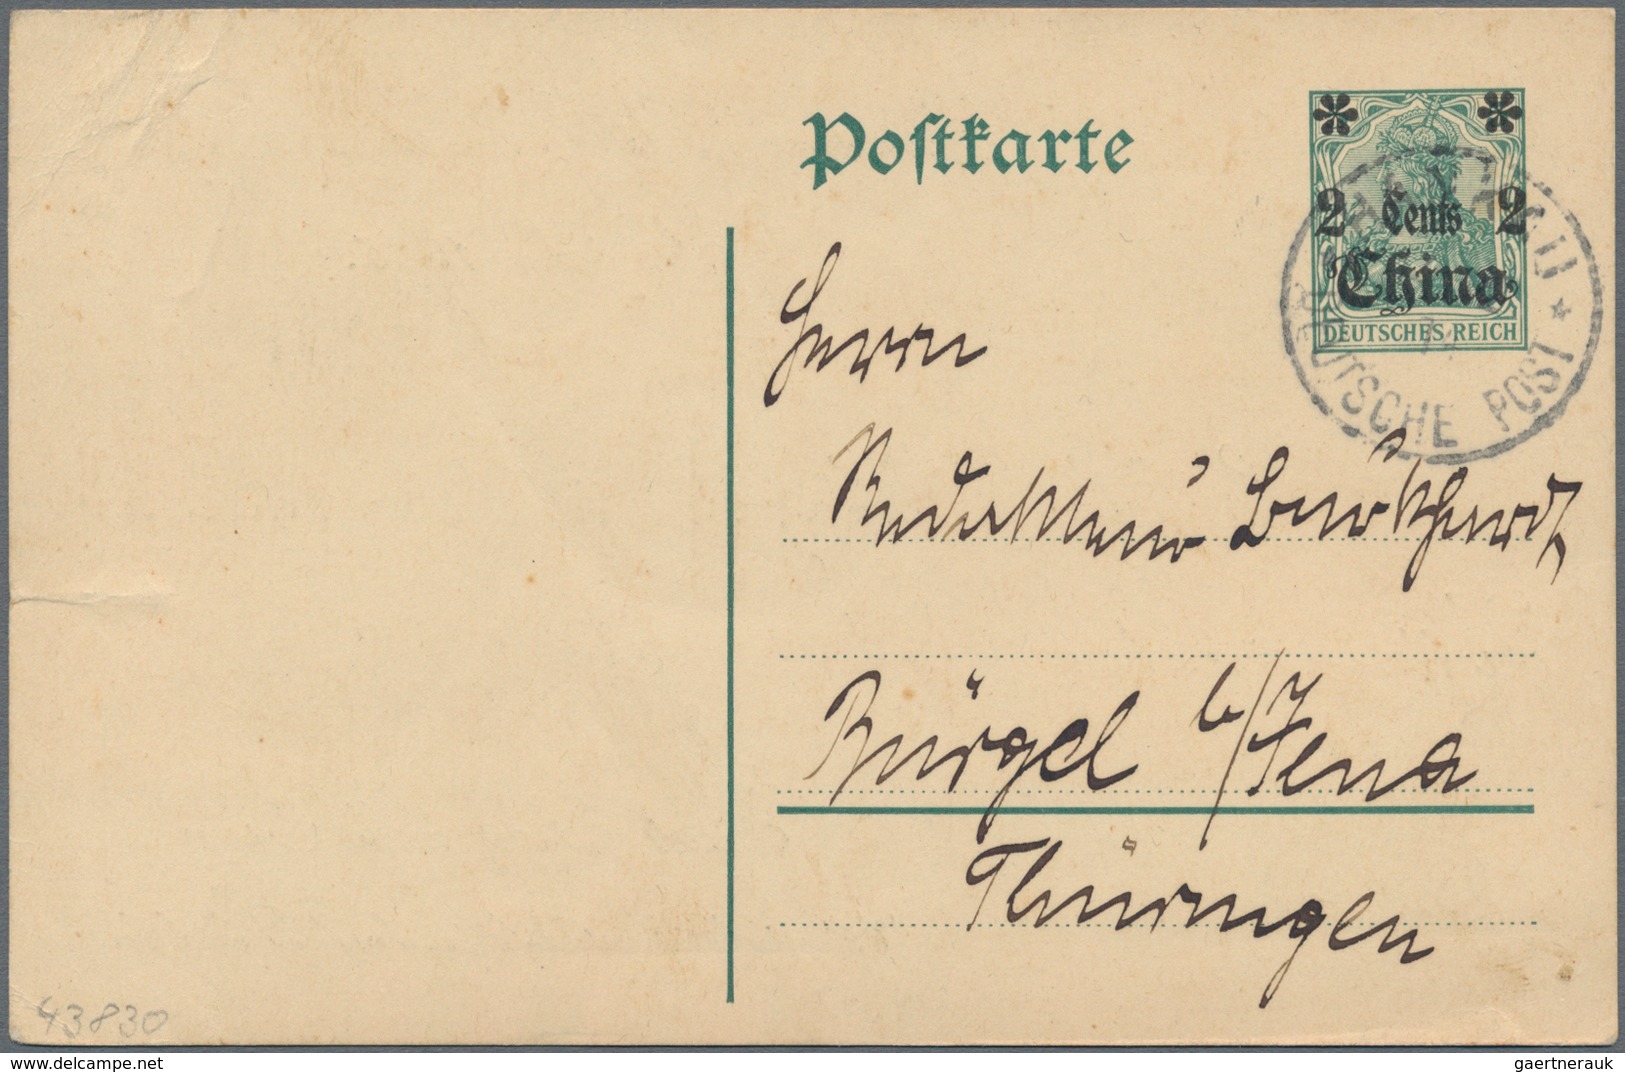 Postkarte
2 Cents 2
China
DEUTSCHES REICH
DEUTSCHE POST
Herrn
Redakteur Burkhardt
Bürgel b/Jena
Thüringen
43830
delcampe.net
gaertnerauk